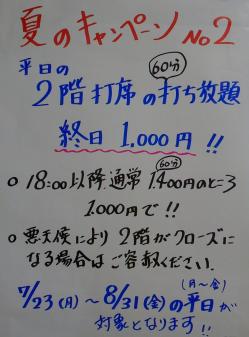 夏のキャンペーン No2
平日の
60分
2階打席の打ち放題
終日 1,000円!!
60分
○ 18:00以降通常1,400円のところ
1,000円で!!
○ 悪天候により2階がクローズに
なる場合はご容赦ください。
(月〜金)
7/23(月)〜8/31(金)の平日が
対象となります!!